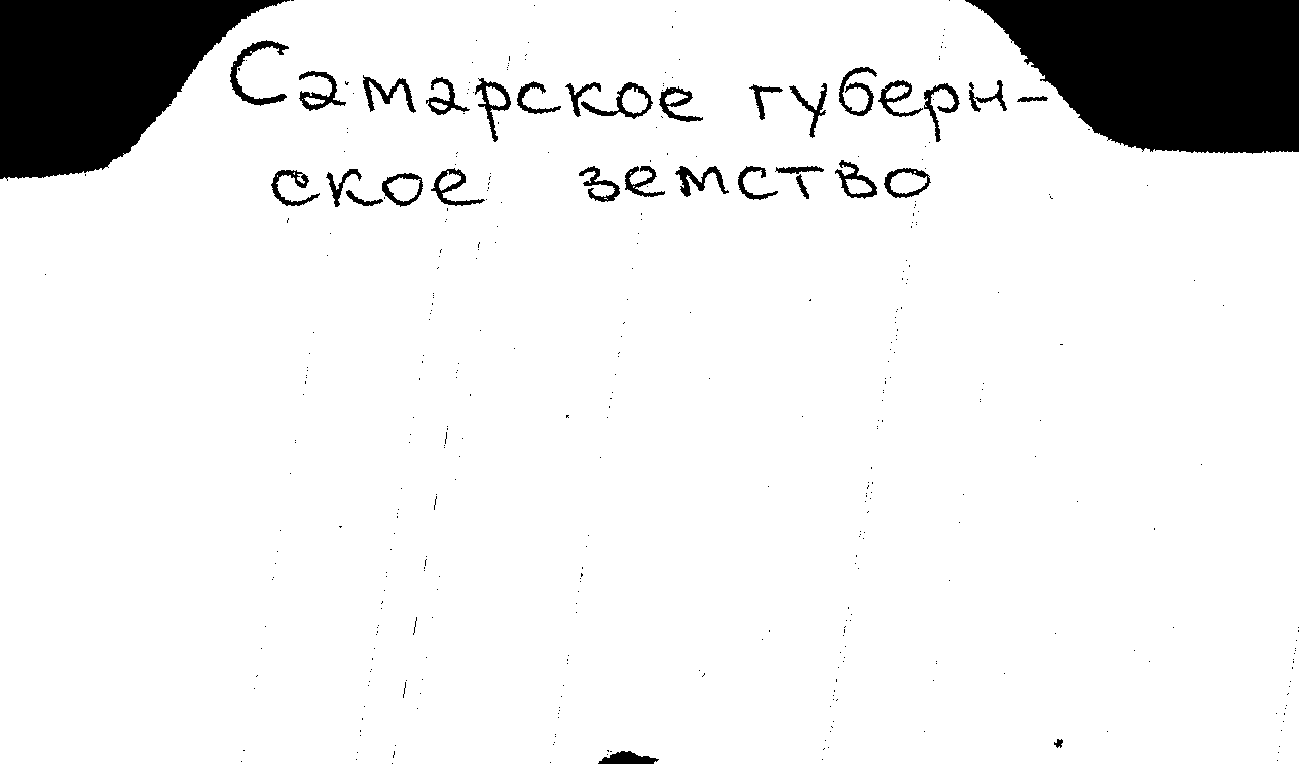 Самарское губерн-
ское земство